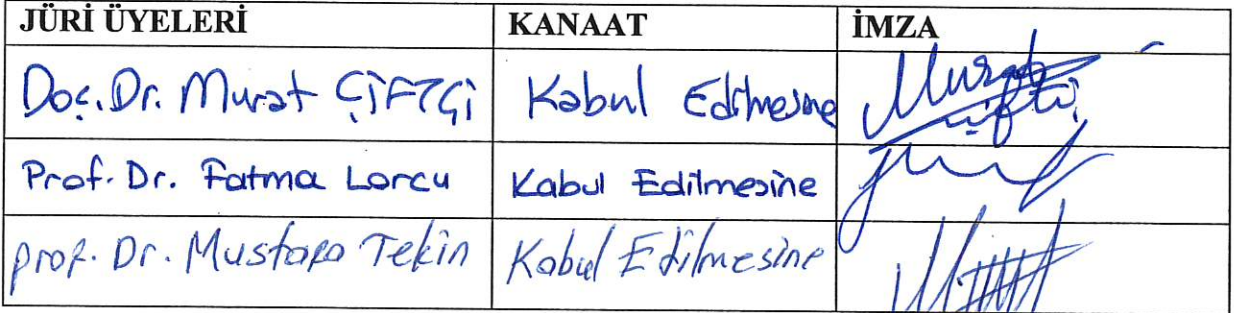 JÜRİ ÜYELERİ KANAAT İMZA
Doç. Dr. Murat ÇİFTÇİ Kabul Edilmesine
Prof. Dr. Fatma Lorcu Kabul Edilmesine
Prof. Dr. Mustafa Tekin Kabul Edilmesine